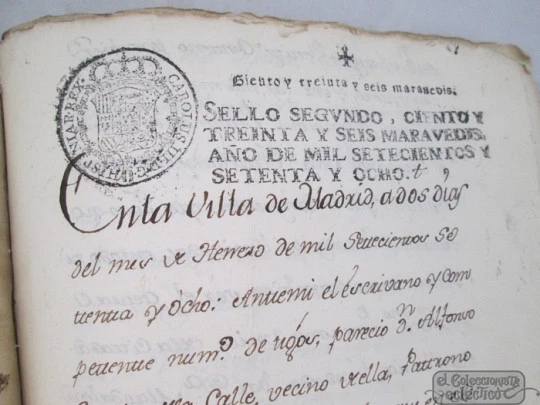 CAROLUS III D.G. HISPANIAR. REX
Ciento y treinta y seis maravedis.
SELLO SEGVNDO, CIENTO Y
TREINTA Y SEIS MARAVEDIS,
AÑO DE MIL SETECIENTOS Y
SETENTA Y OCHO.
En la Villa de Madrid, a dos dias
del mes de Henero de mil Setecientos Se
tenta y Ocho: Antemi el escrivano y com
petente num.º de tgos, parecio Dn. Alfonso
Calle, vecino de ella, Patrono
el Coleccionista
ecléctico